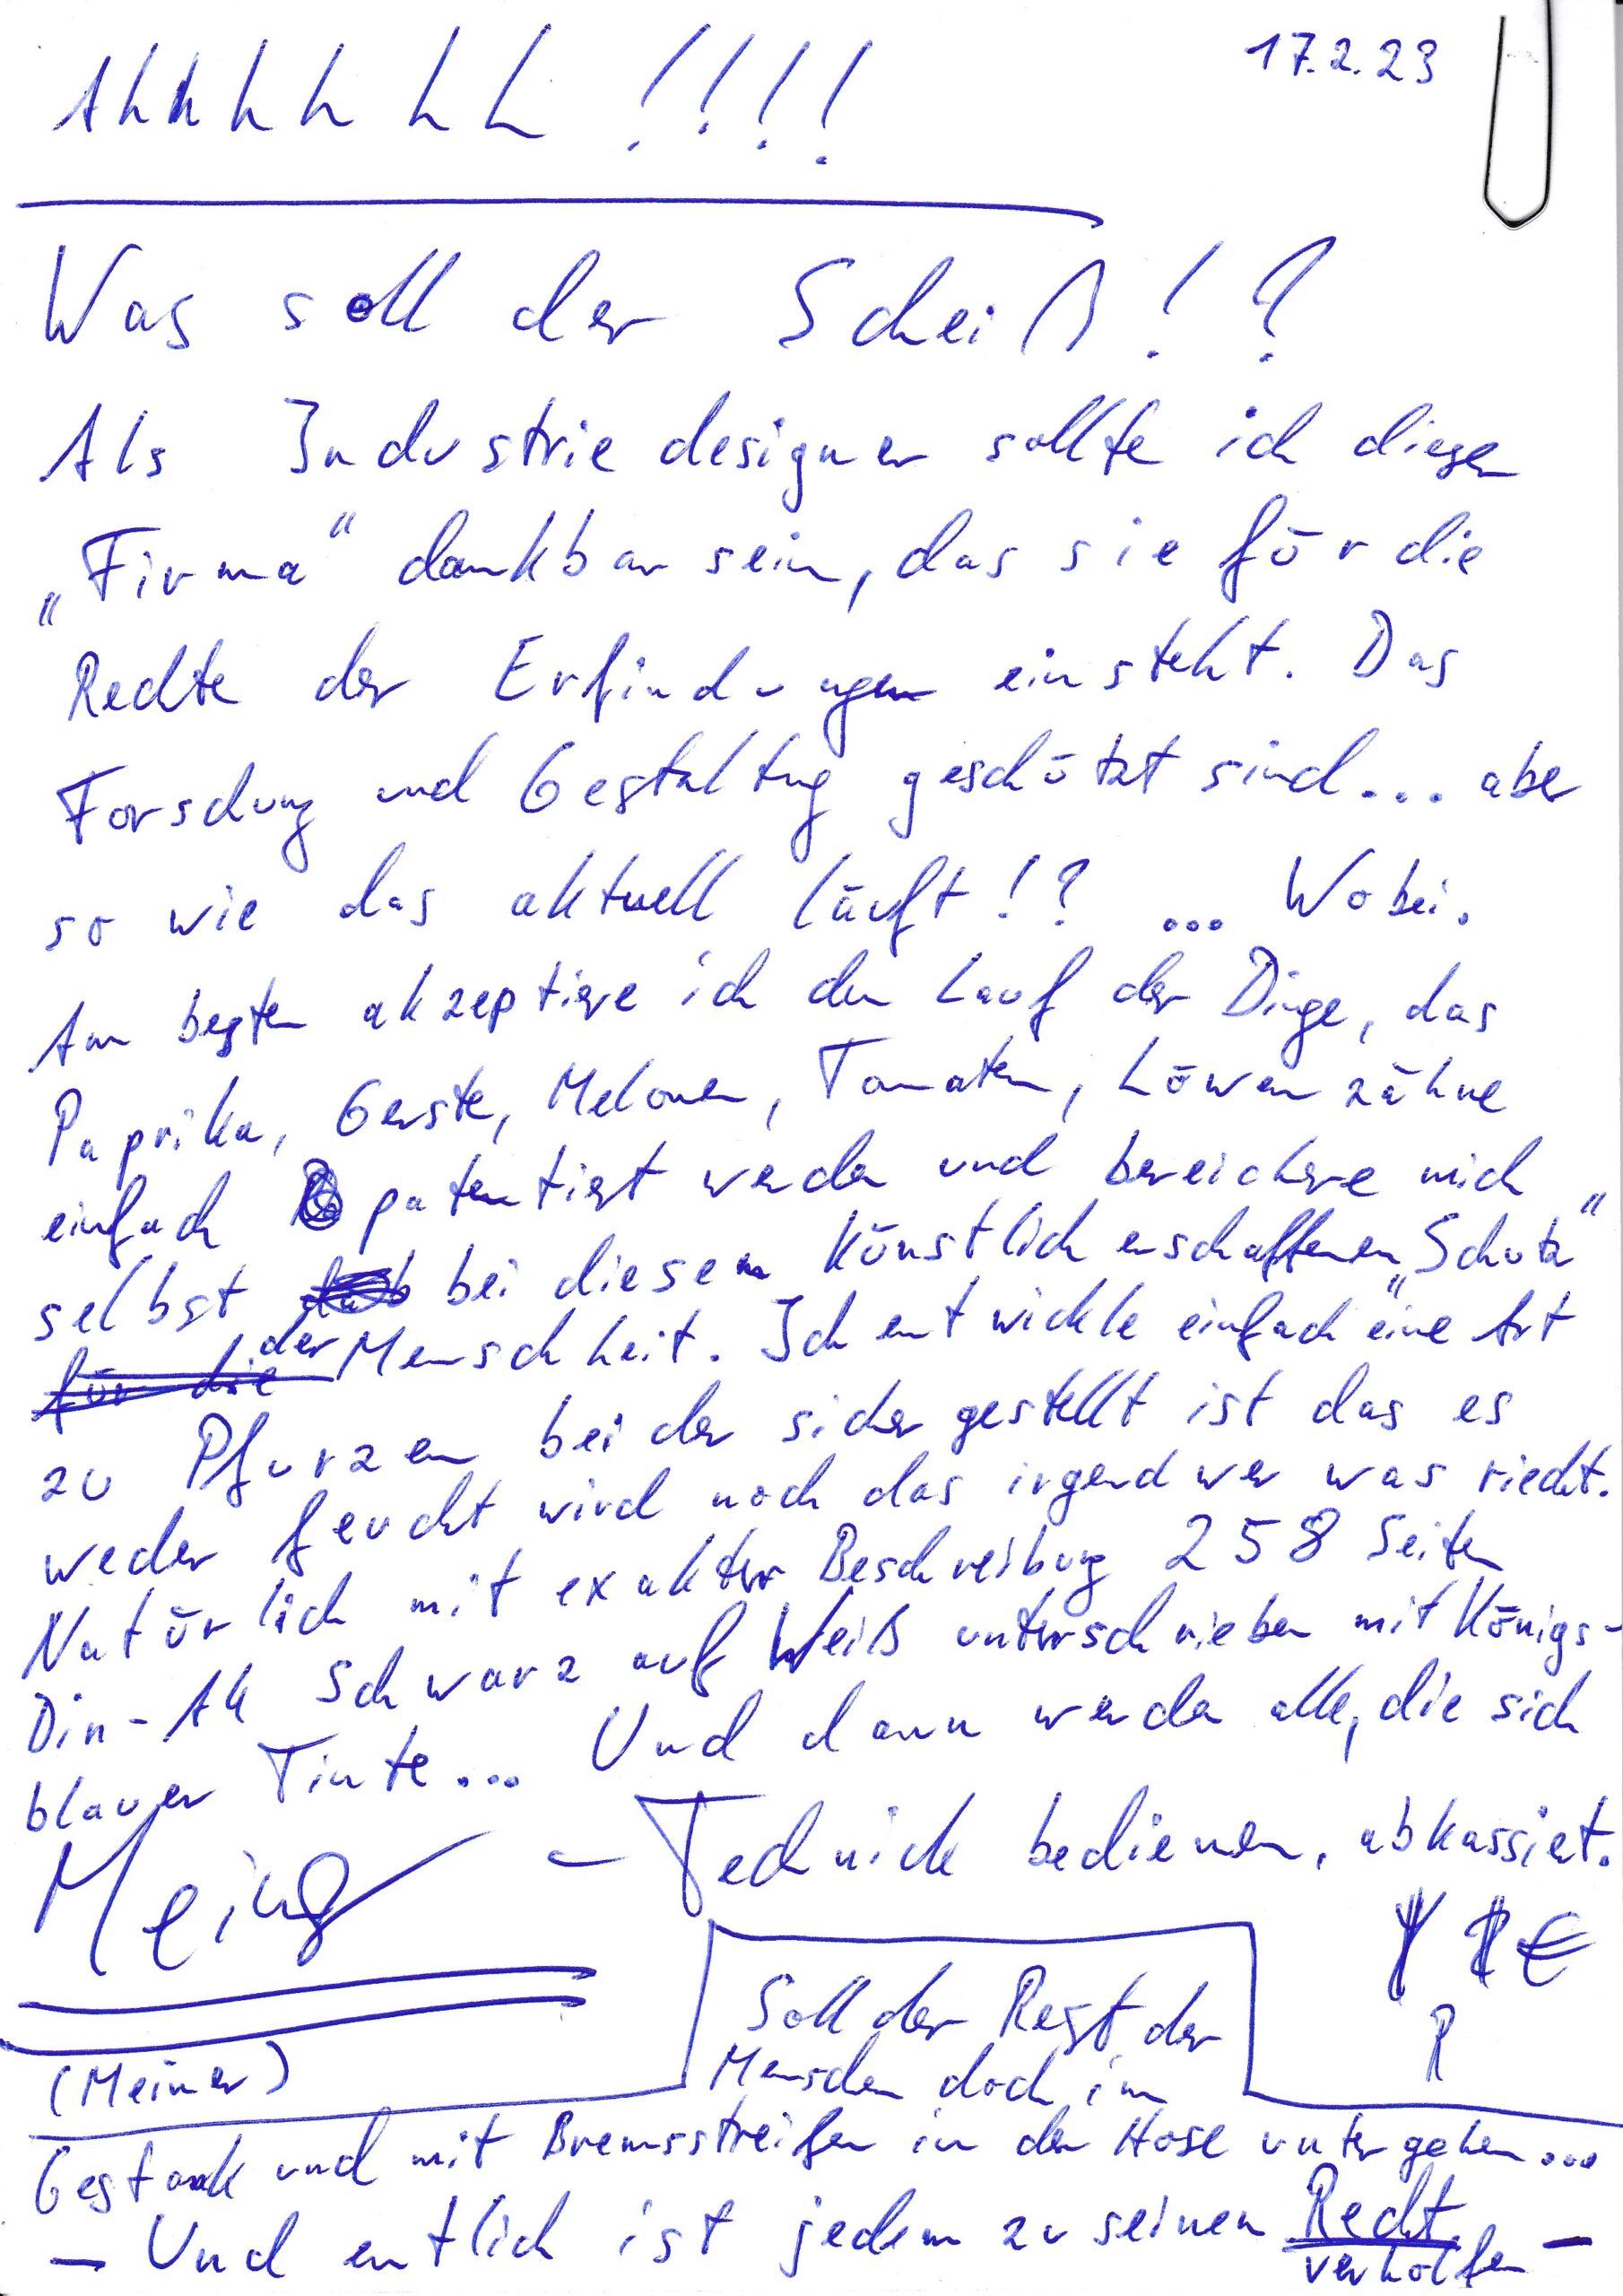 17.2.23
Ahhhhhh!!!!
Was soll der Scheiß!?
Als Industriedesigner sollte ich dieser
„Firma“ dankbar sein, das sie für die
Rechte der Erfindungen einsteht. Das
Forschung und Gestaltung geschützt sind... aber
so wie das aktuell läuft!? ... Wobei.
Am besten akzeptiere ich den Lauf der Dinge, das
Paprika, Gerste, Melonen, Tomaten, Löwenzähne
einfach patentiert werden und bereichere mich
selbst bei diesem künstlich erschaffenen „Schutz“
für die der Menschheit. Ich entwickle einfach eine Art
zu Pfurzen bei der sicher gestellt ist das es
weder feucht wird noch das irgendwer was riecht.
Natürlich mit exakter Beschreibung 258 Seiten
Din-A4 Schwarz auf Weiß unterschrieben mit Königs-
blauer Tinte... Und dann werden alle, die sich
Meiner – Technick bedienen, abkassiert.
¥ $ €
R
(Meiner)
Soll der Rest der
Menschen doch im
Gestank und mit Bremsstreifen in der Hose untergehen...
– Und entlich ist jedem zu seinen Recht
verholfen –